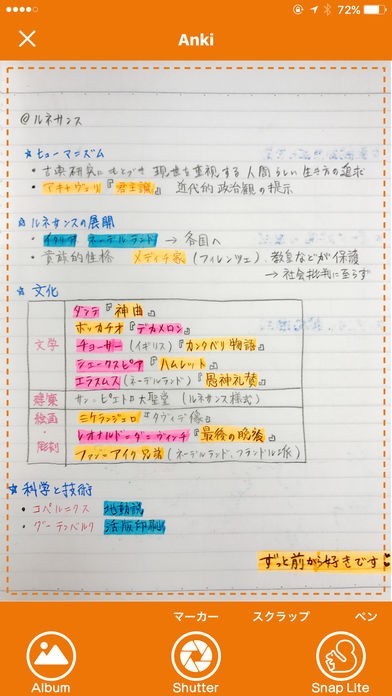 9:00 AM 72%
Anki
@ルネサンス
★ヒューマニズム
・古典研究にもとづき 現世を重視する人間らしい生き方の追求
・マキャヴェリ『君主論』 近代的政治観の提示
★ルネサンスの展開
・イタリア ネーデルランド → 各国へ
・貴族的性格 メディチ家(フィレンツェ)、教皇などが保護
→ 社会批判に至らず
★文化
文学
ダンテ『神曲』
ボッカチオ『デカメロン』
チョーサー(イギリス)『カンタベリ物語』
シェークスピア『ハムレット』
エラスムス(ネーデルランド)『愚神礼賛』
建築 サン=ピエトロ大聖堂 (ルネサンス様式)
絵画・彫刻
ミケランジェロ『ダヴィデ像』
レオナルド=ダ=ヴィンチ『最後の晩餐』
ファン=アイク兄弟(ネーデルランド、フランドル派)
★科学と技術
・コペルニクス 地動説
・グーテンベルク 活版印刷
ずっと前から好きです
マーカー スクラップ ペン
Album Shutter Snap Lite